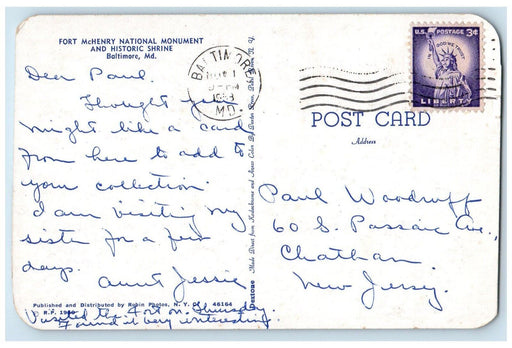 FORT McHENRY NATIONAL MONUMENT
AND HISTORIC SHRINE
Baltimore, Md.
Dear Paul.
Thought you
might like a card
from here to add to
your collection.
I am visiting my
sister for a few
days.
Aunt Jessie
Published and Distributed by Robin Photos, N. Y. C. 46164
© R.P.
Visited the Fort on Thursday.
Found it very interesting.
BALTIMORE
MD.
Made Direct from Kodachrome and Ansco Color By Dexter Press, Pearl River, N. Y.
Dextone
U.S. POSTAGE 3¢
IN GOD WE TRUST
LIBERTY
POST CARD
Address
Paul Woodruff
60 S. Passaic Ave.,
Chatham
New Jersey.